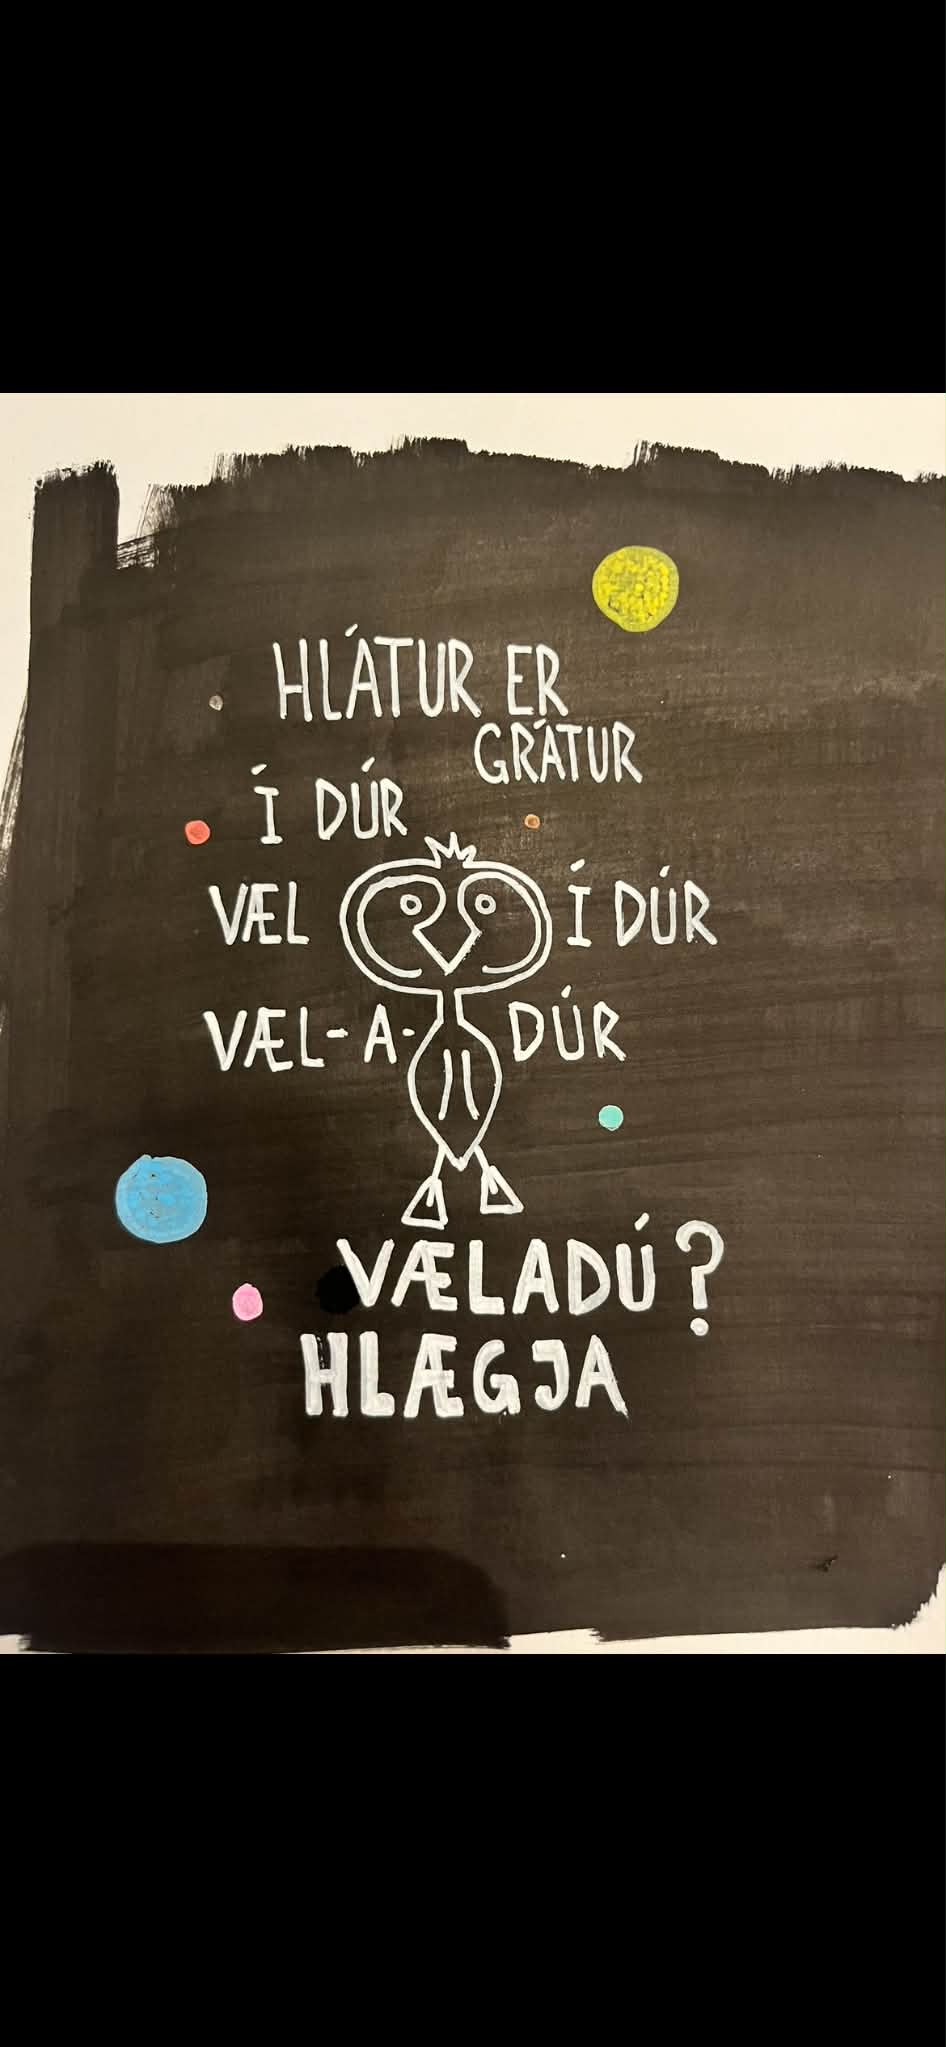 HLÁTUR ER
GRÁTUR
Í DÚR
VÆL Í DÚR
VÆL-A-DÚR
VÆLADÚ?
HLÆGJA